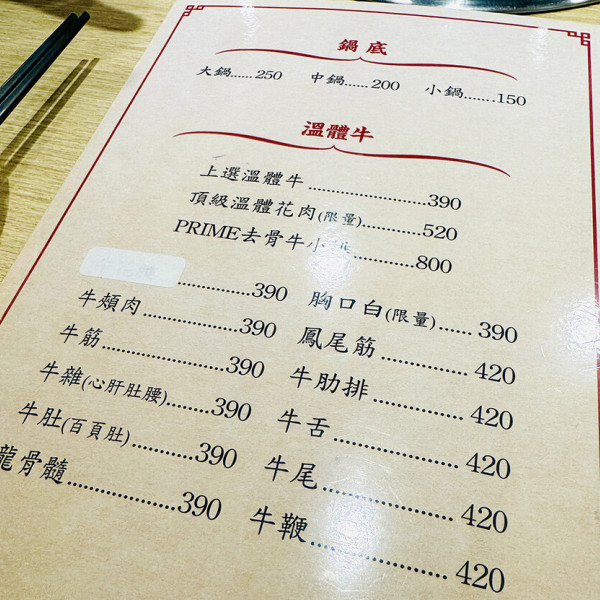 鍋底
大鍋......250 中鍋......200 小鍋.......150
溫體牛
上選溫體牛......................390
頂級溫體花肉(限量)...........520
PRIME去骨牛小排...........800
..................390 胸口白(限量)......390
牛頰肉..................390 鳳尾筋...............420
牛筋......................390 牛肋排...............420
牛雜(心肝肚腰)........390 牛舌....................420
牛肚(百頁肚)............390 牛尾....................420
龍骨髓...................390 牛鞭....................420